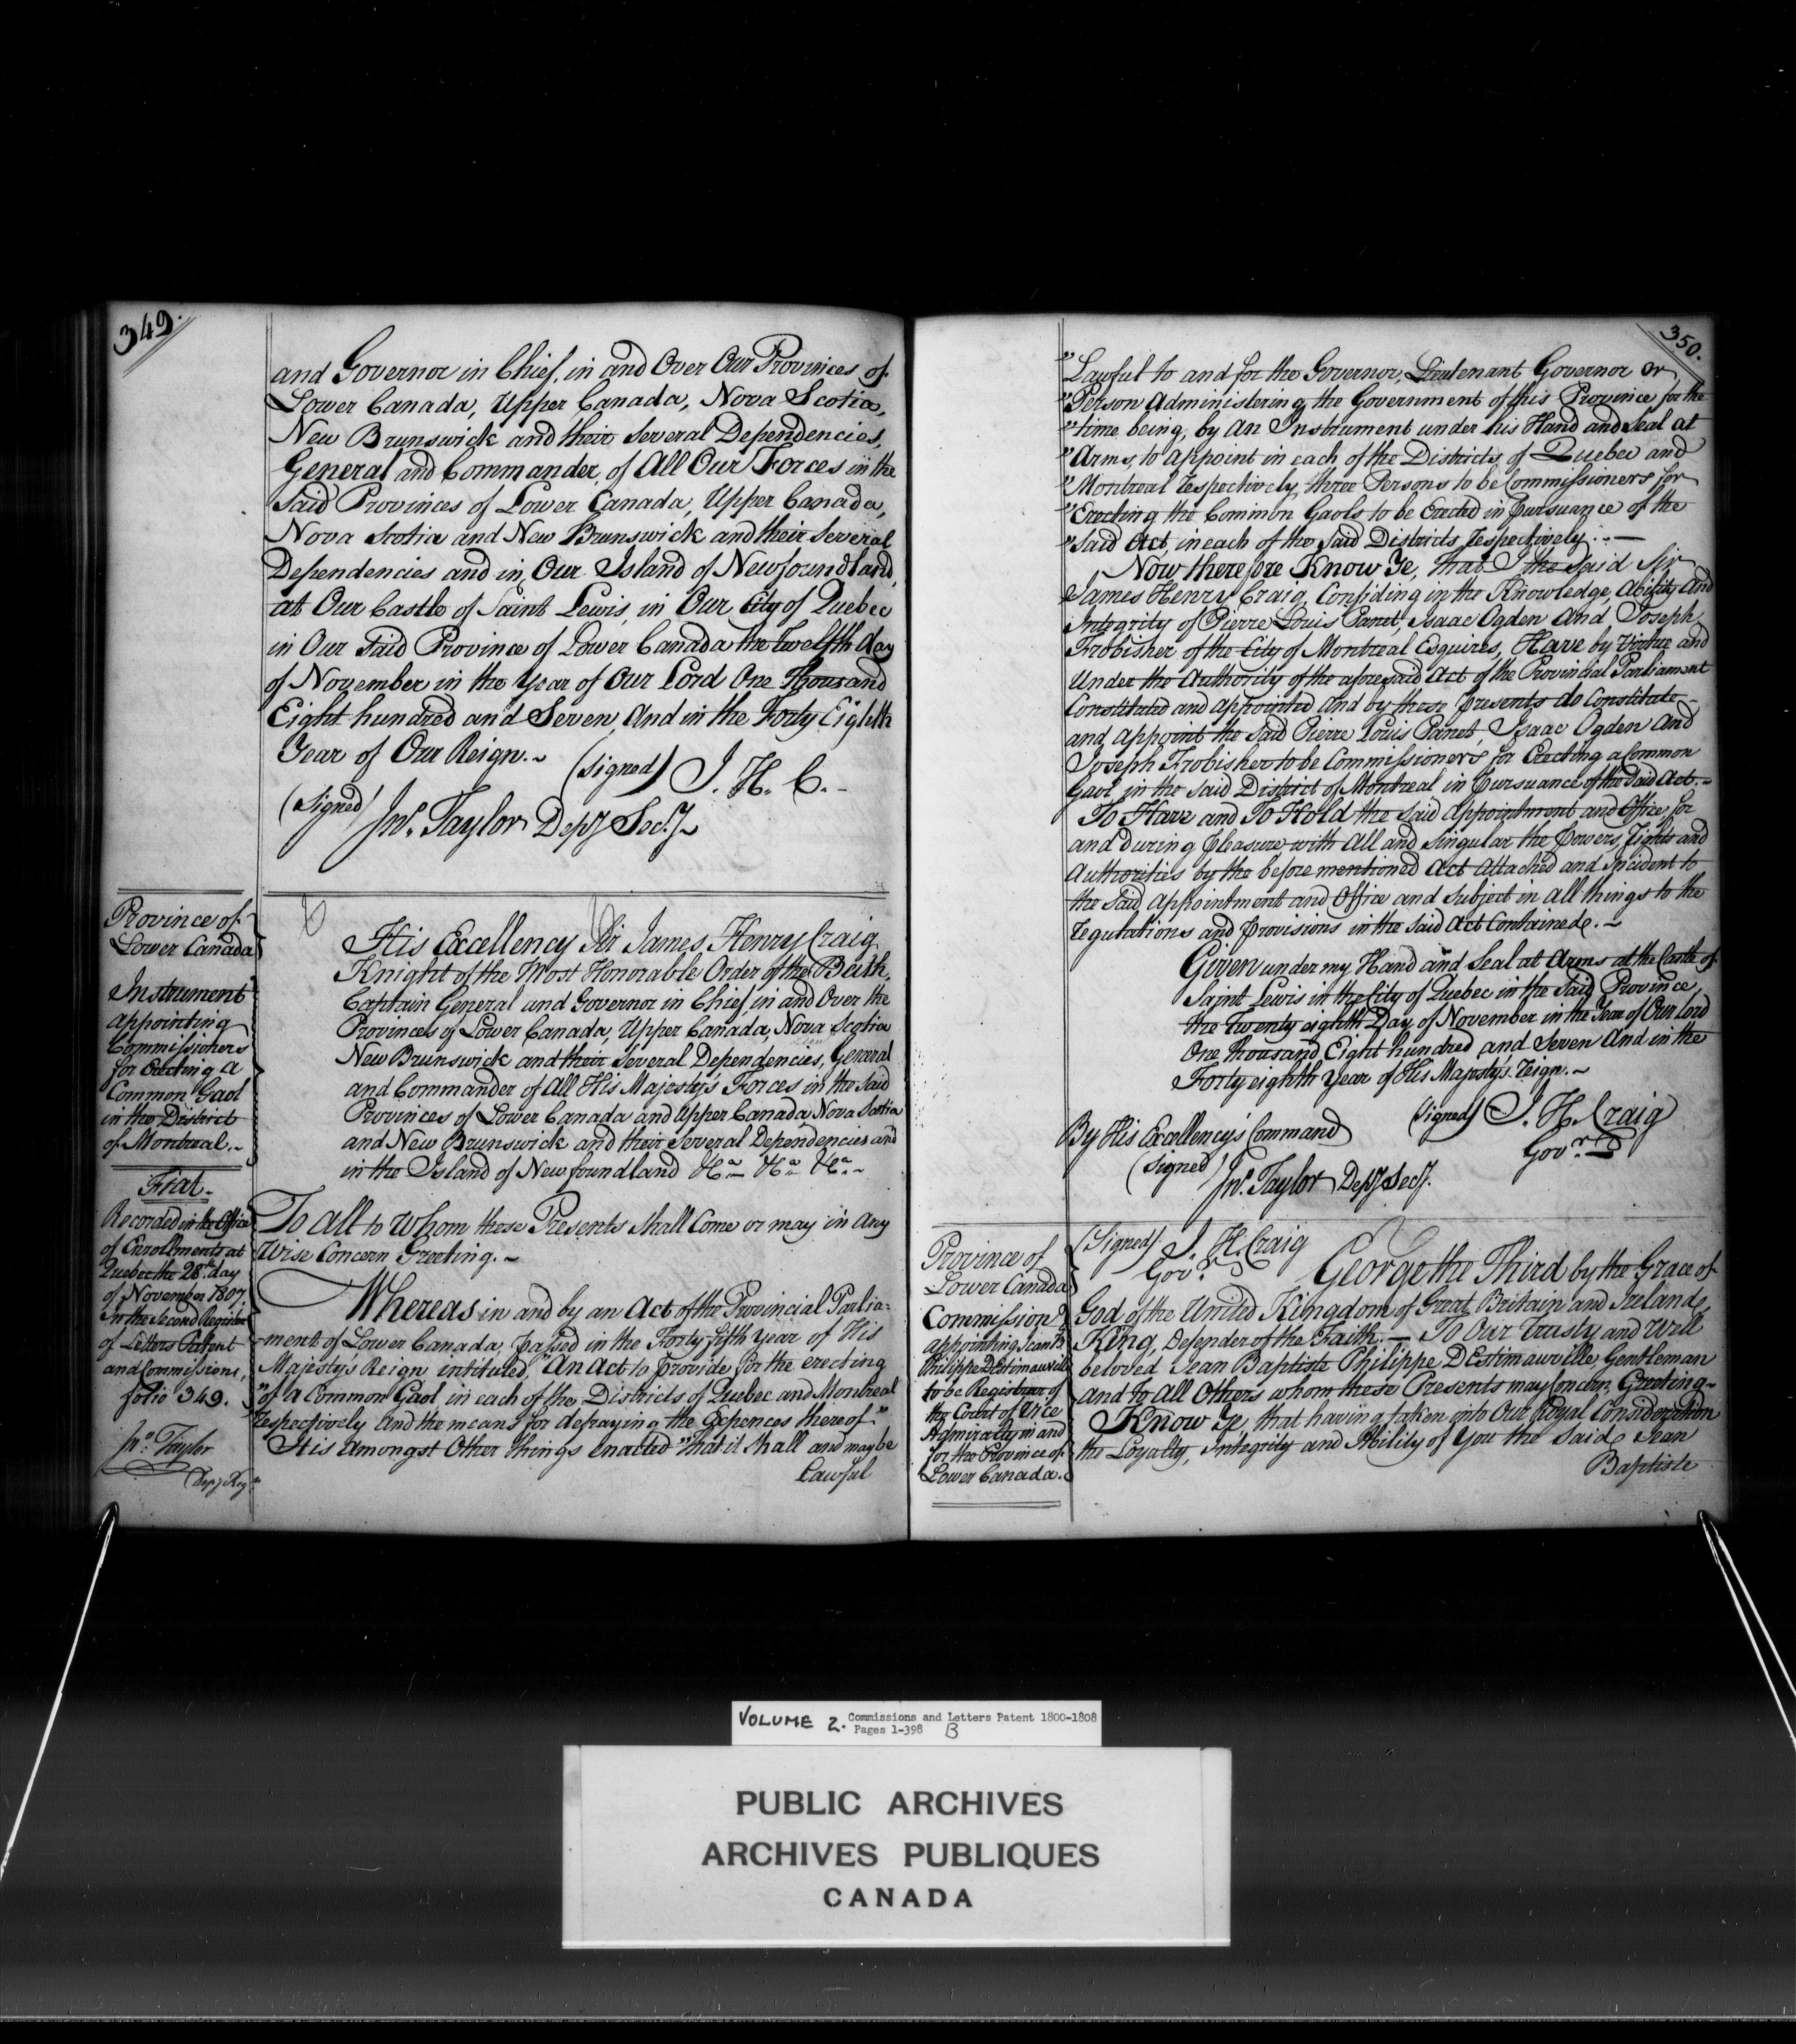 349.
and Governor in Chief, in and Over Our Provinces of
Lower Canada, Upper Canada, Nova Scotia,
New Brunswick and their Several Dependencies,
General and Commander, of All Our Forces in the
Said Provinces of Lower Canada, Upper Canada,
Nova Scotia and New Brunswick and their Several
Dependencies and in Our Island of Newfoundland,
at Our Castle of Saint Lewis, in Our City of Quebec
in Our Said Province of Lower Canada the twelfth day
of November in the Year of Our Lord One Thousand
Eight hundred and Seven, And in the Forty Eighth
Year of Our Reign.~
(Signed) J. H. C.-
(Signed) Jno. Taylor Depy Secy~
Province of
Lower Canada
Instrument
appointing
Commissioners
for Erecting a
Common Gaol
in the District
of Montreal.~
Fiat.
Recorded in the Office
of Enrollments at
Quebec the 28th day
of November 1807
In the Second Register
of Letters Patent
and Commissions,
folio 349.
Jno. Taylor
Depy Regr
His Excellency Sir James Henry Craig
Knight of the Most Honorable Order of the Bath,
Captain General and Governor in Chief, in and Over the
Provinces of Lower Canada, Upper Canada, Nova Scotia
New Brunswick and their Several Dependencies, General
and Commander of All His Majesty's Forces in the Said
Provinces of Lower Canada and Upper Canada, Nova Scotia
and New Brunswick and their Several Dependencies and
in the Island of Newfoundland &a &a &a~
To all to Whom these Presents shall Come or may in any
Wise Concern Greeting.~
Whereas in and by an Act of the Provincial Parlia=
-ment of Lower Canada, passed in the Forty fifth Year of His
Majesty's Reign intituled, "An Act to provide for the erecting
"of a Common Gaol in each of the Districts of Quebec and Montreal
respectively and the means for defraying the Expences thereof"
It is amongst Other things enacted "that it shall and may be
Lawful
350.
"Lawful to and for the Governor, Lieutenant Governor or
"Person Administering the Government of this Province for the
"time being, by An Instrument under his Hand and Seal at
"Arms, to appoint in each of the Districts of Quebec and
"Montreal respectively, three Persons to be Commissioners for
"Erecting the Common Gaols to be Erected in pursuance of the
"Said Act, in each of the Said Districts respectively.~
Now therefore Know Ye, that I the Said Sir
James Henry Craig, Confiding in the Knowledge, Ability And
Integrity of Pierre Louis Panet, Isaac Ogden And Joseph
Frobisher of the City of Montreal Esquires, Have by Virtue and
Under the Authority of the aforesaid Act of the Provincial Parliament
Constituted and appointed And by these presents do Constitute
and appoint the Said Pierre Louis Panet, Isaac Ogden And
Joseph Frobisher to be Commissioners for Erecting a Common
Gaol in the Said District of Montreal in pursuance of the Said Act.~
To Have and To Hold the Said Appointment and Office for
and During pleasure with All and Singular the powers, rights and
Authorities by the before mentioned Act Attached and incident to
the Said Appointment and Office and Subject in all things to the
regulations and provisions in the Said Act Contained.~
Given under my Hand and Seal at Arms at the Castle of
Saint Lewis in the City of Quebec in the Said Province,
the twenty eighth Day of November in the Year of Our Lord
One thousand Eight hundred and Seven And in the
Forty eighth Year of His Majesty's Reign.~
(Signed) J. H. Craig
Govr.
By His Excellency's Command
(Signed) Jno. Taylor Depy Secy.
Province of
Lower Canada
Commission
appointing Jean Bte
Philippe D'Estimauville
to be Registrar of
the Court of Vice
Admiralty in and
for the Province of
Lower Canada.
(Signed) J. H. Craig
Govr.
George the Third by the Grace of
God of the United Kingdom of Great Britain and Ireland,
King, Defender of the Faith.— To Our Trusty and Well
beloved Jean Baptiste Philippe DEstimauville, Gentleman
and to all Others whom these Presents may Concern, Greeting~
Know Ye, that having taken into Our Royal Consideration
the Loyalty, Integrity and Ability of You the Said Jean
Baptiste
VOLUME 2. Commissions and Letters Patent 1800-1808
Pages 1-398 B
PUBLIC ARCHIVES
ARCHIVES PUBLIQUES
CANADA